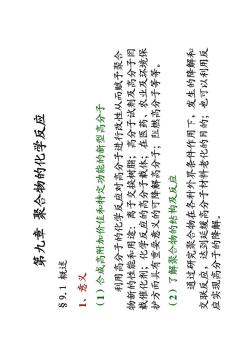 第九章 聚合物的化学反应
§9.1 概述
1、意义
(1)合成高附加价值和特定功能的新型高分子
利用高分子的化学反应对高分子进行改性从而赋予聚合
物新的性能和用途:离子交换树脂;高分子试剂及高分子固
载催化剂;化学反应的高分子载体;在医药、农业及环境保
护方面具有重要意义的可降解高分子;阻燃高分子等等。
(2)了解聚合物的结构及反应
通过研究聚合物在各种外界条件作用下,发生的降解和
交联反应,达到延缓高分子材料老化的目的;也可以利用反
应实现高分子的降解。